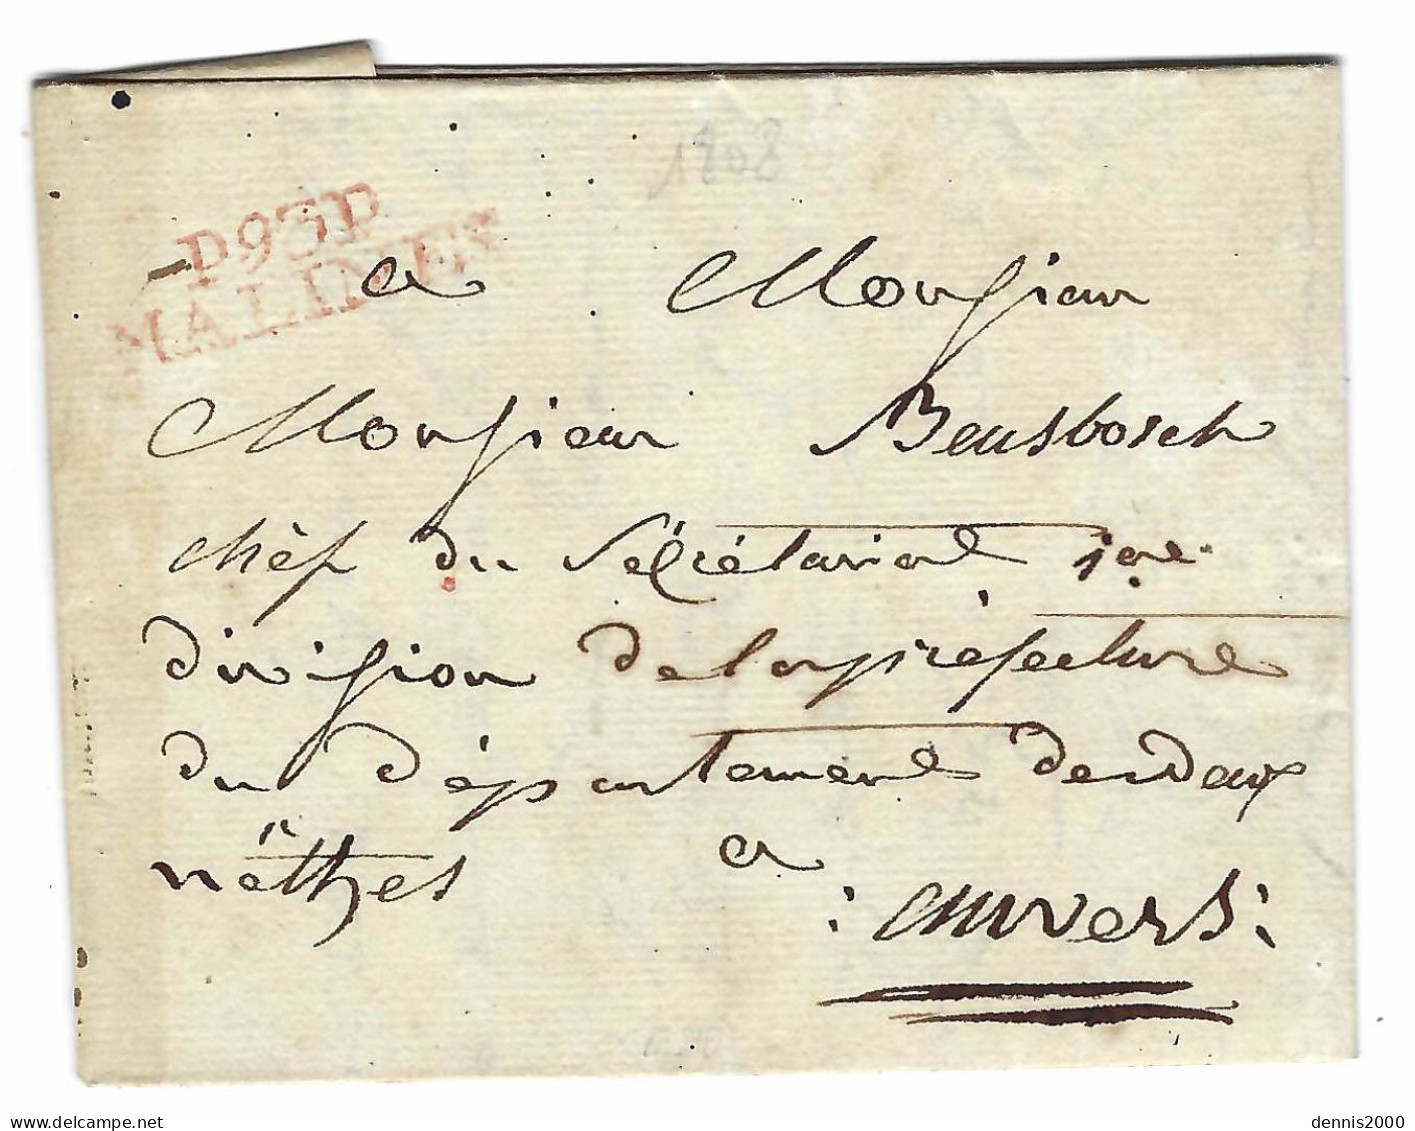 1808
P93P
MALINES
a Monsieur
Monsieur Beusbosch
chèf du Sécrétariat 1ere
division de la préfecture
du département des deux
nêthes a
: anvers :
delcampe.net
dennis2000